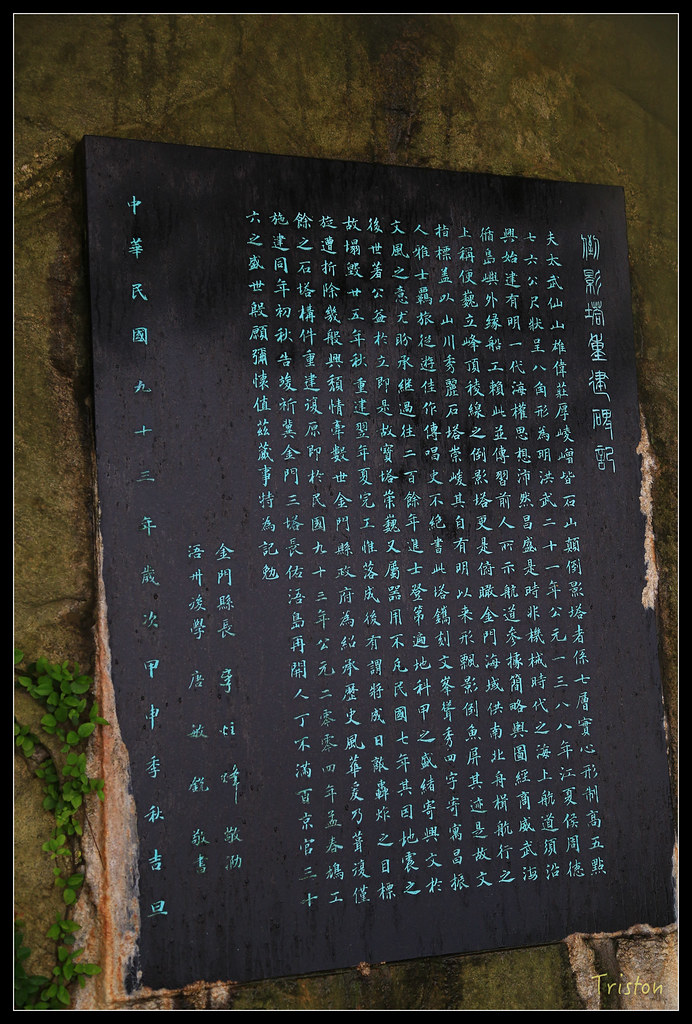 倒影塔重建碑記
夫太武仙山雄偉莊厚崚嶒皆石山巔倒影塔者係七層實心形制高五點
七六公尺狀呈八角形為明洪武二十一年公元一三八八年江夏侯周德
興始建有明一代海權思想沛然昌盛是時非機械時代之海上航道須沿
循島嶼外緣船工賴此並傳習前人所示航道參據簡略輿圖經商威武海
上稱便巍立峰頂稜線之倒影塔更是俯瞰金門海域供南北舟楫航行之
指標蓋以山川秀麗石塔崇峻其自有明以來形飄影倒魚屏其迹是故文
人雅士羈旅從遊佳作傳唱史不絕書此塔鐫刻文峯聳秀四字寄寓昌振
文風之意尤盼承繼過往二百餘年進士登第遍地科甲之盛緒寄興文於
後世著公益於立即是故寶塔崇巍又屬器用不凡民國七年其因地震之
故塌毀廿五年秋重建翌年夏完工惟落成後有謂將成日敵轟炸之目標
旋遭折除幾般興頹情牽數世金門縣政府為紹承歷史風華爰乃葺復僅
餘之石塔構件重建復原即於民國九十三年公元二零零四年孟春鳩工
施建同年初秋告竣祈冀金門三塔長佑浯島再開人丁不滿百京官三十
六之盛世殷願彌懷值茲蕆事特為記勉
金門縣長 李炷烽 敬泐
浯州後學 唐敏銳 敬書
中華民國九十三年歲次甲申季秋吉旦
Triston